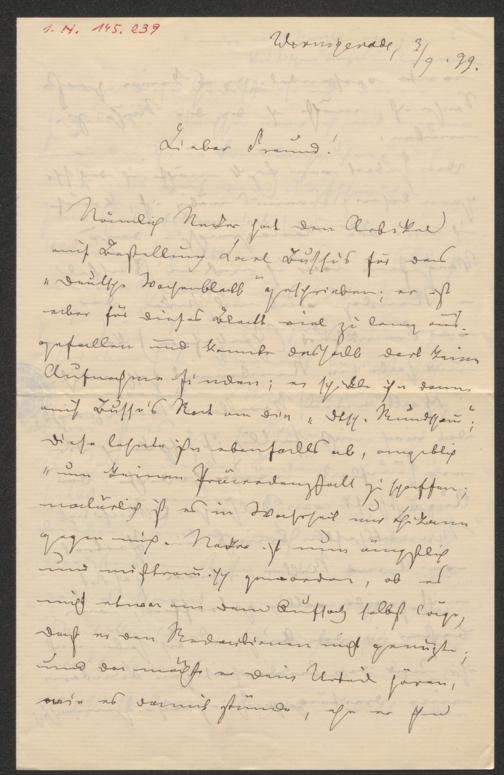 I. N. 145.239
Wernigerode, 3/9. 99.
Lieber Freund!
Nämlich Necker hat den Artikel
auf Bestellung Karl Busse's für das
„Deutsche Wochenblatt" geschrieben; er ist
aber für dieses Blatt viel zu lang aus-
gefallen und konnte deshalb dort keine
Aufnahme finden; er schickte ihn dann
auf Busse's Rat an die „Dtsch. Rundschau";
diese lehnte ihn ebenfalls ab, angeblich
„um keinen Präcedenzfall zu schaffen;
natürlich ist es in Wahrheit nur Chikane
gegen mich. Necker ist nun ängstlich
und mißtrauisch geworden, ob es
nicht etwa an dem Aufsatz selbst läge,
daß er den Redactionen nicht genügte;
und da möchte er Dein Urteil hören,
wie es damit stünde, ehe er ihn